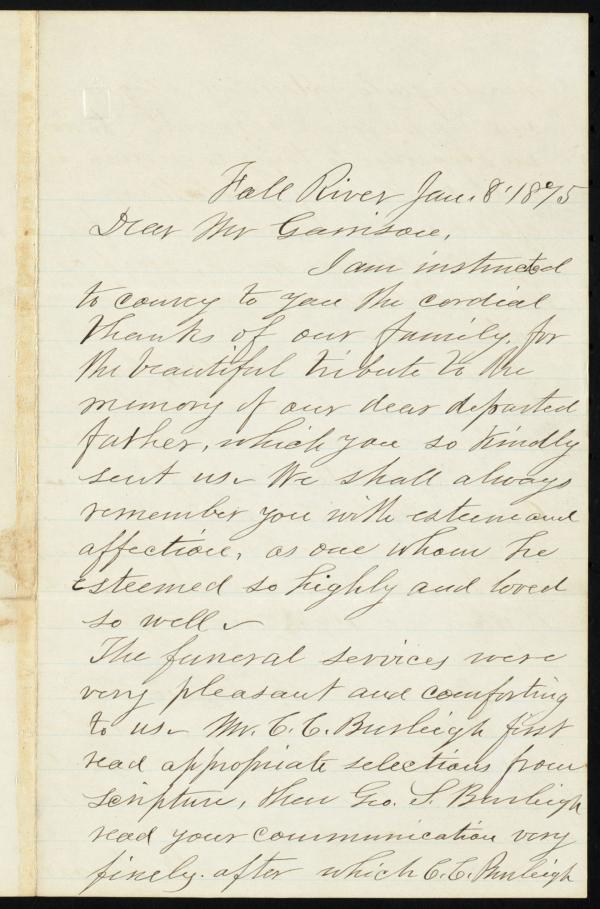 Fall River Jan. 8' 1875
Dear Mr Garrison,
I am instructed
to convey to you the cordial
thanks of our family, for
the beautiful tribute to the
memory of our dear departed
father, which you so kindly
sent us. We shall always
remember you with esteem and
affection, as one whom he
esteemed so highly and loved
so well.
The funeral services were
very pleasant and comforting
to us. Mr. C. C. Burleigh first
read appropriate selections from
scripture, then Geo. S. Burleigh
read your communication very
finely. after which C. C. Burleigh